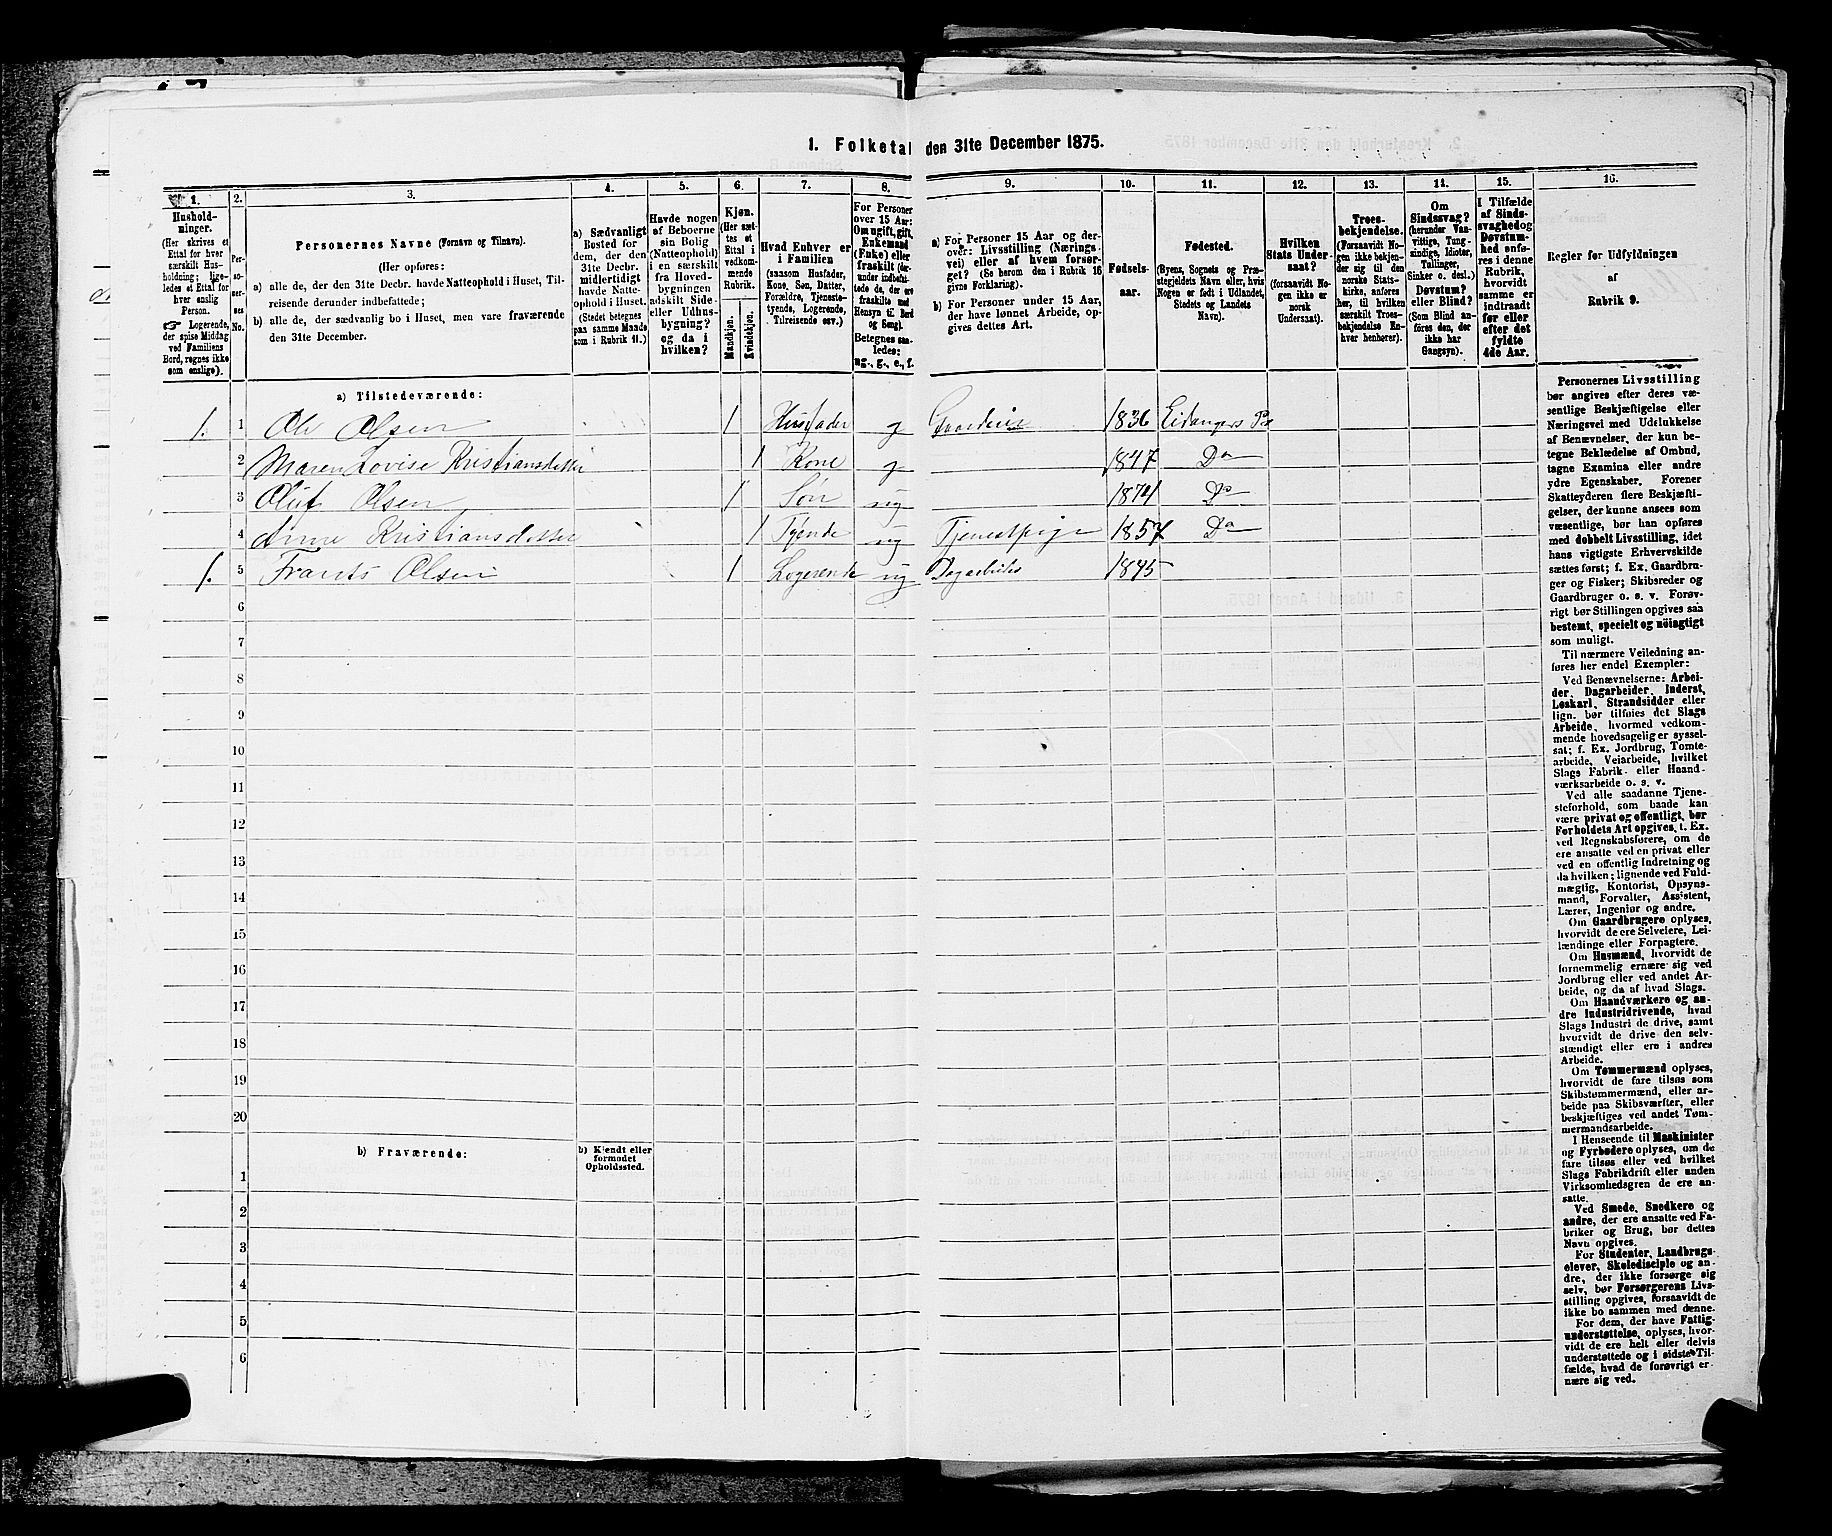 1. Folketal den 31te December 1875.
1. 2. 3. 4. 5. 6. 7. 8. 9. 10. 11. 12. 13. 14. 15. 16.
Hushold-
ninger.
(Her skrives et
Ettal for hver
særskilt Hus-
holdning; lige-
ledes et Ettal for
hver enslig
Person.
☞ Logerende,
der spise Middag
ved Familiens
Bord, regnes ikke
som enslige).
Per-
so-
ner-
nes
No.
Personernes Navne (Fornavn og Tilnavn).
(Her opføres:
a) alle de, der den 31te Decbr. havde Natteophold i Huset, Til-
reisende derunder indbefattede;
b) alle de, der sædvanlig bo i Huset, men vare fraværende
den 31te December.
a) Sædvanligt
Bosted for
dem, der den
31te Decbr.
midlertidigt
havde Natte-
ophold i Huset.
(Stedet betegnes
paa samme Maade
som i Rubrik 11.)
Havde nogen
af Beboerne
sin Bolig
(Natteophold)
i en særskilt
fra Hoved-
bygningen
adskilt Side-
eller Udhus-
bygning?
og da i
hvilken?
Kjøn.
(Her sæt-
tes et
Ettal i
vedkom-
mende
Rubrik.
Mandkjøn.
Kvindekjøn.
Hvad Enhver er
i Familien
(saasom Husfader,
Kone, Søn, Datter,
Forældre, Tjeneste-
tyende, Logerende,
Tilreisende osv.)
For Personer
over 15 Aar:
Om ugift, gift,
Enkemand
(Enke) eller
fraskilt (der-
under indbefat-
tede de, der ere
fraskilte med
Hensyn til Bord
og Seng).
Betegnes saa-
ledes:
ug., g., e., f.
a) For Personer 15 Aar og der-
over: Livsstilling (Nærings-
vei) eller af hvem forsør-
get? (Se herom den i Rubrik 16
givne Forklaring).
b) For Personer under 15 Aar,
der have lønnet Arbeide, op-
gives dettes Art.
Fødsels-
aar.
Fødested.
(Byens, Sognets og Præ-
stegjeldets Navn eller, hvis
Nogen er født i Udlandet,
Stedets og Landets
Navn).
Hvilken
Stats Under-
saat?
(forsaavidt No-
gen ikke er
norsk
Undersaat).
Troes-
bekjendelse.
(Forsaavidt No-
gen ikke bekjen-
der sig til den
norske Stats-
kirke, anføres
her, til hvilken
særskilt Troes-
bekjendelse En-
hver henhører).
Om
Sindssvag?
(herunder Van-
vittige, Tung-
sindige, Idioter,
Tullinger,
Sinker o. desl.)
Døvstum?
eller Blind?
(Som Blind an-
føres den, der
ikke har
Gangsyn).
I Tilfælde
af Sinds-
svaghed og
Døvstum-
hed anfø-
res i denne
Rubrik,
hvorvidt
samme er
indtraadt
før eller
efter det
fyldte
4de Aar.
Regler for Udfyldningen
af
Rubrik 9.
a) Tilstedeværende:
1. 1 Ole Olsen 1 Husfader g Gaardeier 1836 Eidangers Pr
2 Maren Lovise Kristiansdatter 1 Kone g 1847 Do
3 Oluf Olsen 1 Søn ug 1874 Do
4 Anne Kristiansdatter 1 Tyende ug Tjenestpige 1857 Do
1. 5 Frants Olsen 1 Logerende ug Dagarbeider 1845
6
7
8
9
10
11
12
13
14
15
16
17
18
19
20
b) Fraværende:
b) Kjendt eller
formodet
Opholdssted.
1
2
3
4
5
6
Personernes Livsstilling
bør angives efter deres væ-
sentlige Beskjæftigelse eller
Næringsvei med Udelukkelse
af Benævnelser, der kun be-
tegne Beklædelse af Ombud,
tagne Examina eller andre
ydre Egenskaber. Forener
Skatteyderen flere Beskjæfti-
gelser, der kunne ansees som
væsentlige, bør han opføres
med dobbelt Livsstilling, idet
hans vigtigste Erhvervskilde
sættes først; f. Ex. Gaardbru-
ger og Fisker; Skibsreder og
Gaardbruger o. s. v. Forøv-
rigt bør Stillingen opgives saa
bestemt, specielt og nöiagtigt
som muligt.
Til nærmere Veiledning an-
føres her endel Exempler:
Ved Benævnelserne: Arbei-
der, Dagarbeider, Inderst,
Løskarl, Strandsidder eller
lign. bør tilføies det Slags
Arbeide, hvormed vedkom-
mende hovedsagelig er syssel-
sat; f. Ex. Jordbrug, Tomte-
arbeide, Veiarbeide, hvilket
Slags Fabrik- eller Haand-
værksarbeide o. s. v.
Ved alle saadanne Tjene-
steforhold, som baade kan
være privat og offentligt, bør
Forholdets Art opgives, t. Ex.
ved Regnskabsførere, om de
ere ansatte ved en privat eller
ved en offentlig Indretning og
da hvilken; lignende ved Fuld-
mægtig, Kontorist, Opsyns-
mand, Forvalter, Assistent,
Lærer, Ingeniør og andre.
Om Gaardbrugere oplyses,
hvorvidt de ere Selveiere, Lei-
lændinge eller Forpagtere.
Om Husmænd, hvorvidt de
fornemmelig ernære sig ved
Jordbrug eller ved andet Ar-
beide, og da af hvad Slags.
Om Haandværkere og an-
dre Industridrivende, hvad
Slags Industri de drive, samt
hvorvidt de drive den selv-
stændigt eller ere i andres
Arbeide.
Om Tømmermænd oplyses,
hvorvidt de fare tilsøs som
Skibstømmermænd, eller ar-
beide paa Skibsværfter, eller
beskjæftiges ved andet Tøm-
mermandsarbeide.
I Henseende til Maskinister
og Fyrbødere oplyses, om de
fare tilsøs eller ved hvilket
Slags Fabrikdrift eller anden
Virksomhedsgren de ere an-
satte.
Ved Smede, Snedkere og
andre, der ere ansatte ved Fa-
briker og Brug, bør dettes
Navn opgives.
For Studenter, Landbrugs-
elever, Skoledisciple og an-
dre, der ikke forsørge sig
selv, bør Forsørgerens Livs-
stilling opgives, forsaavidt de
ikke bo sammen med denne.
For dem, der have Fattig-
understøttelse, oplyses, hvor-
vidt de ere helt eller delvis
understøttede og i sidste Til-
fælde, hvad de forøvrigt er-
nære sig ved.